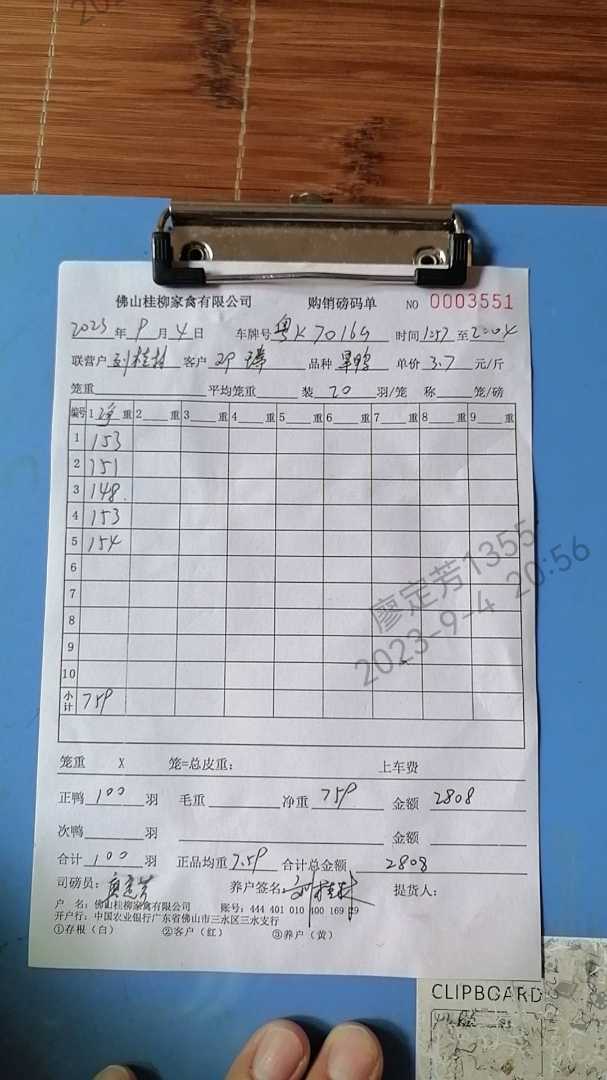 佛山桂柳家禽有限公司 购销磅码单 NO 0003551
2023年9月4日 车牌号 粤K7016G 时间 1:57 至
联营户 刘桂林 客户 邓 品种 单价 3.7 元/斤
笼重 平均笼重 装 20 羽/笼 称 笼/磅
编号 1 净 重 2 重 3 重 4 重 5 重 6 重 7 重 8 重 9 重
1 153
2 151
3 148
4 153
5 154
6
7
8
9
10
小计 759
笼重 X 笼=总皮重: 上车费
正鸭 100 羽 毛重 净重 759 金额 2808
次鸭 羽 金额
合计 100 羽 正品均重 7.59 合计总金额 2808
司磅员: 廖定芳 养户签名: 刘桂林 提货人:
户 名: 佛山桂柳家禽有限公司 账号: 444 401 010 400 169 29
开户行: 中国农业银行广东省佛山市三水区三水支行
①存根(白) ②客户(红) ③养户(黄)
廖定芳1355
2023-9-4 20:56
CLIPBOARD